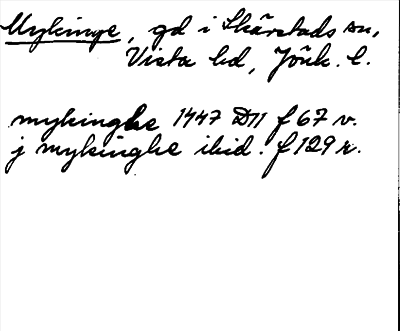 Mykinge, gd i Skärstads sn,
Vista hd, Jönk. l.
mykinghe 1447 D11 f 67 v.
j mykinghe ibid. f 129 r.